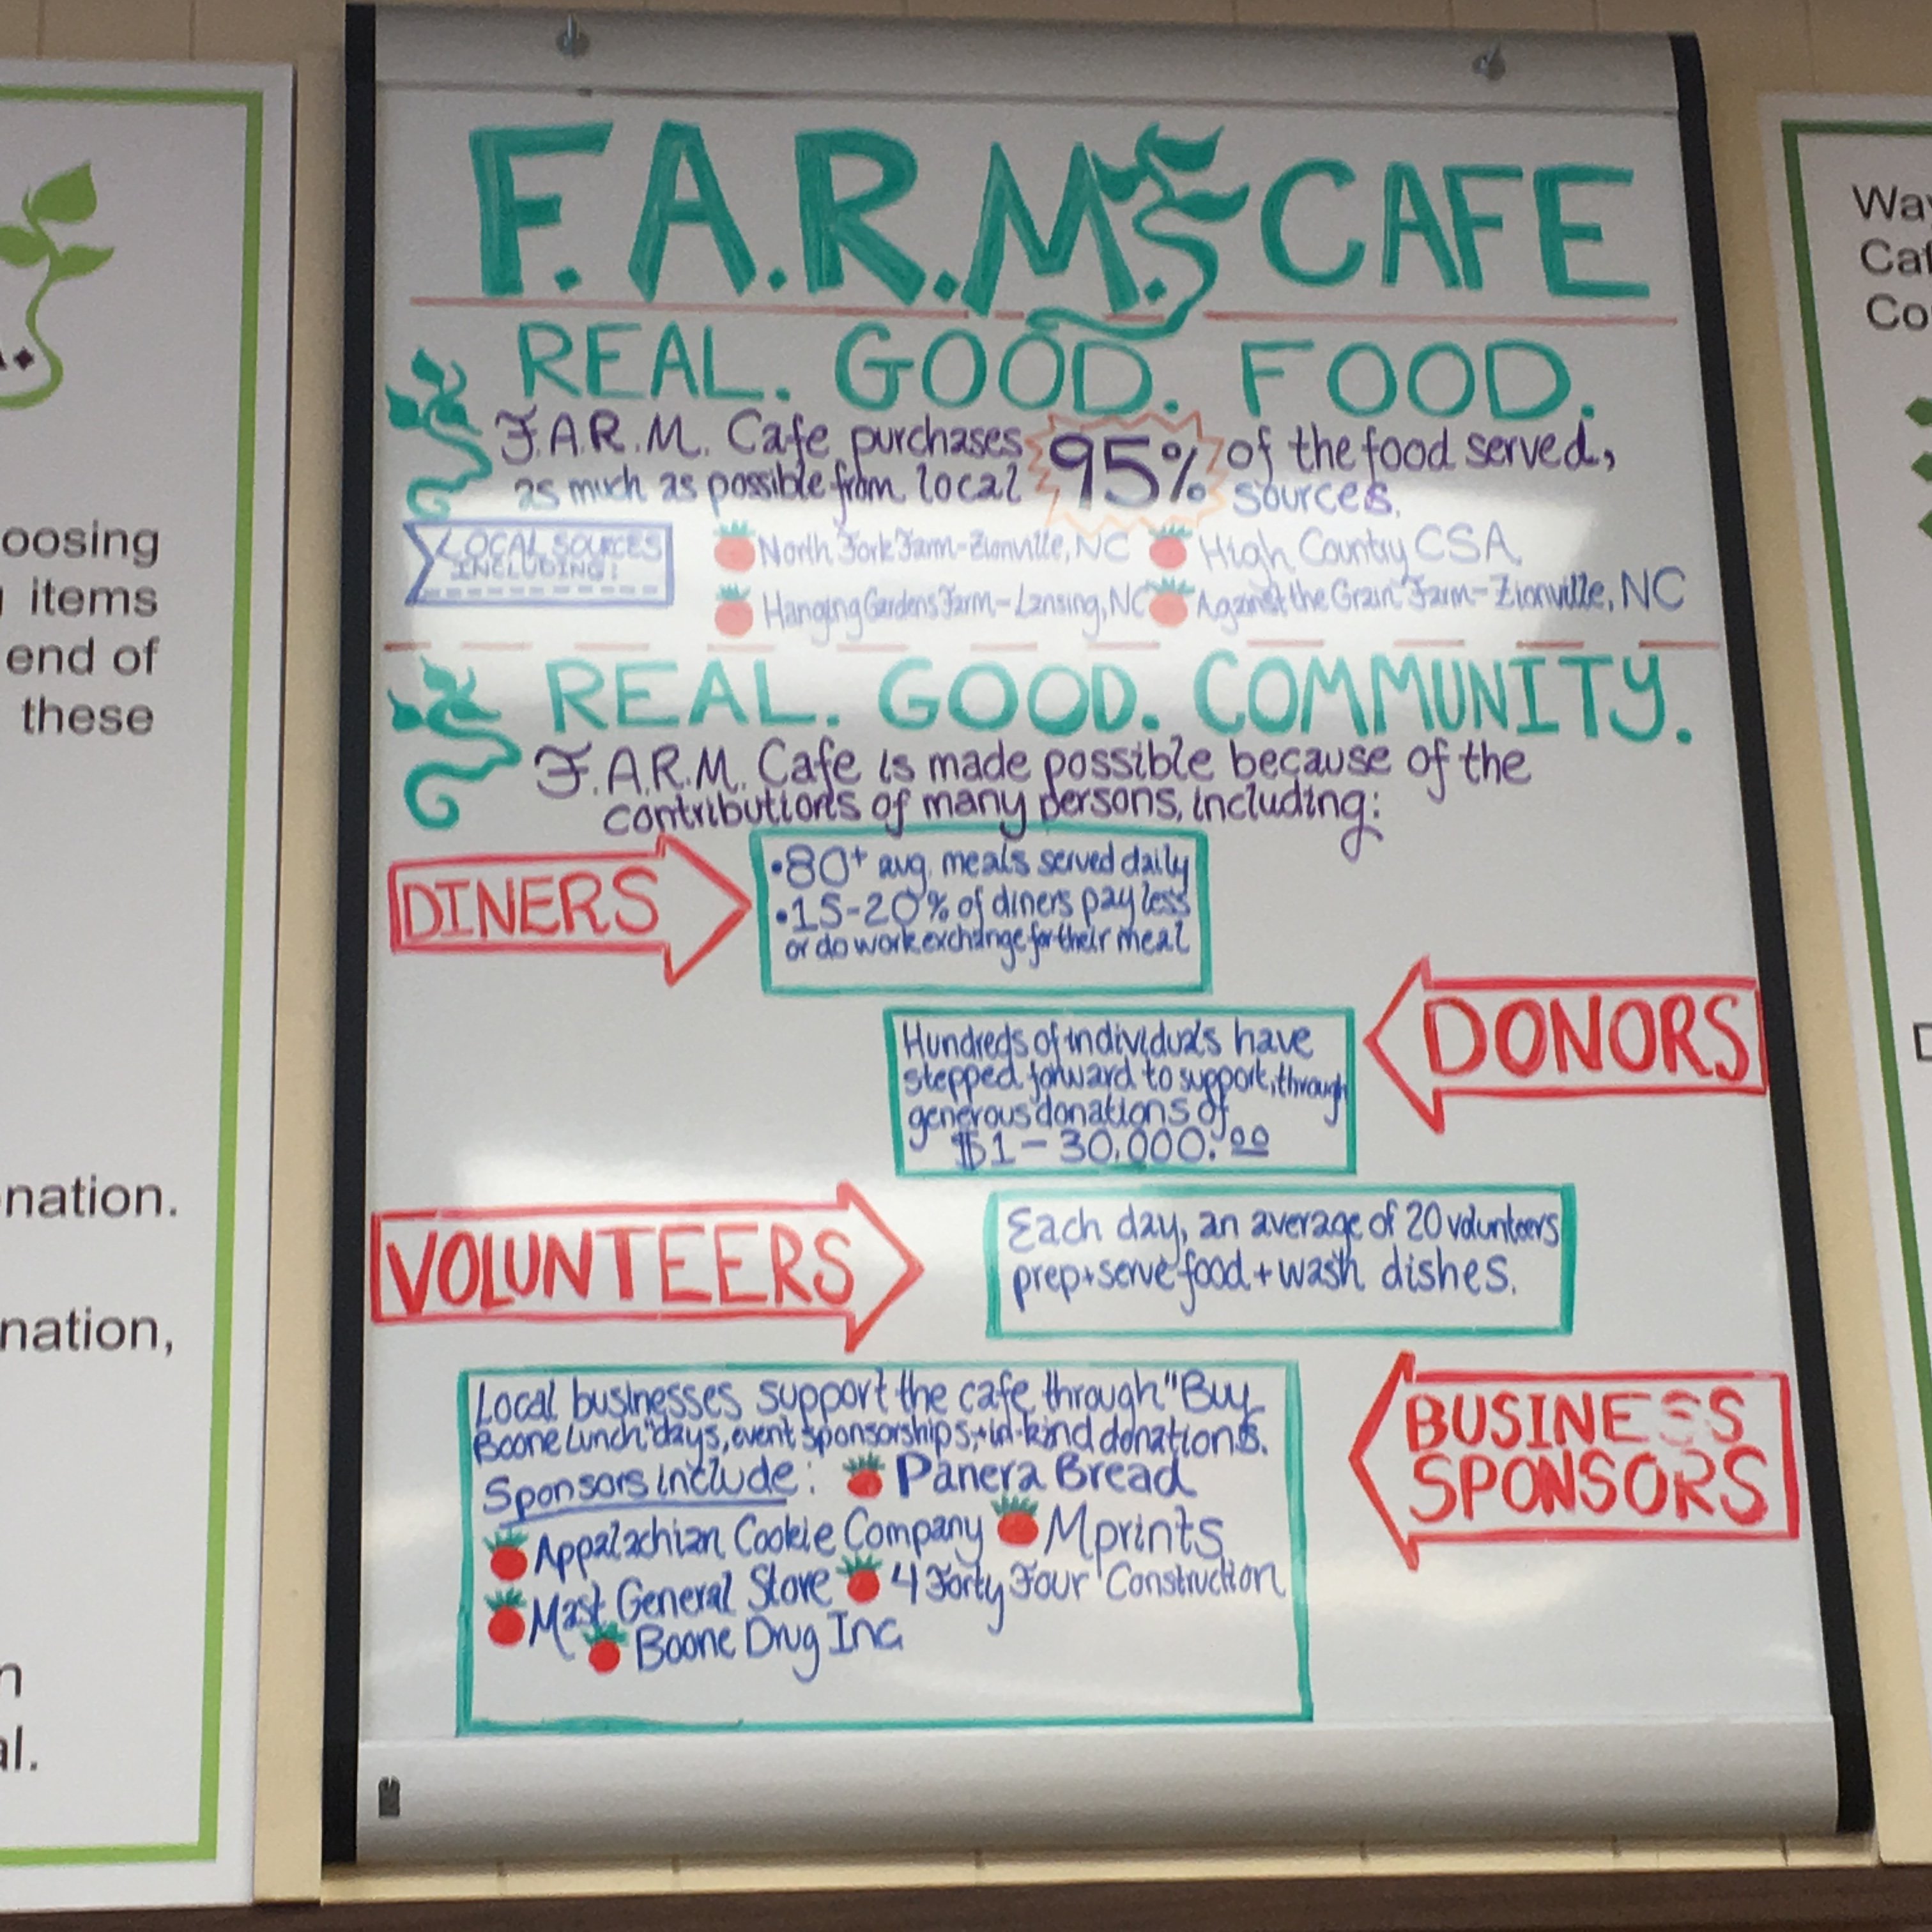 F.A.R.M. CAFE
REAL. GOOD. FOOD.
F.A.R.M. Cafe purchases 95% of the food served,
as much as possible from local sources.
LOCAL SOURCES
INCLUDING:
North Fork Farm-Zionville, NC
High Country CSA
Hanging Gardens Farm-Lansing, NC
Against the Grain Farm-Zionville, NC
REAL. GOOD. COMMUNITY.
F.A.R.M. Cafe is made possible because of the
contributions of many persons, including:
DINERS
•80+ avg. meals served daily
•15-20% of diners pay less
or do work exchange for their meal
DONORS
Hundreds of individuals have
stepped forward to support, through
generous donations of
$1-30,000.00
VOLUNTEERS
Each day, an average of 20 volunteers
prep+serve food + wash dishes.
BUSINESS
SPONSORS
Local businesses support the cafe through "Buy
Boone Lunch" days, event sponsorships,+in-kind donations.
Sponsors include: Panera Bread
Appalachian Cookie Company Mprints
Mast General Store 4 Forty Four Construction
Boone Drug Inc
oosing
items
end of
these
nation.
nation,
al.
Co